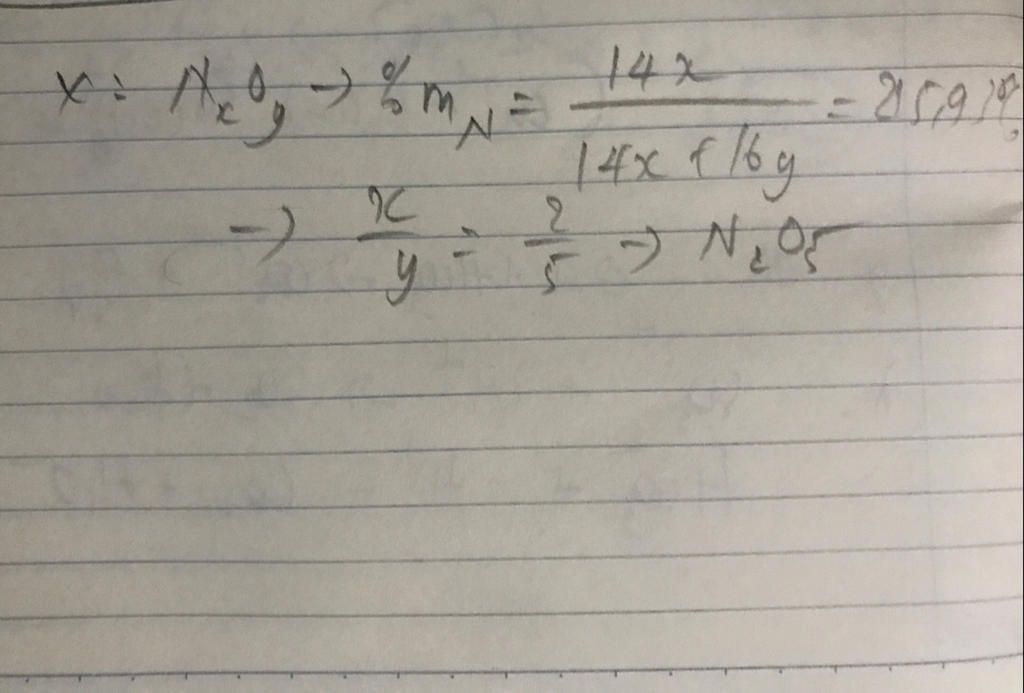 X: NₓOᵧ → %m_N = 14x / (14x + 16y) = 25,93%
→ x/y = 2/5 → N₂O₅